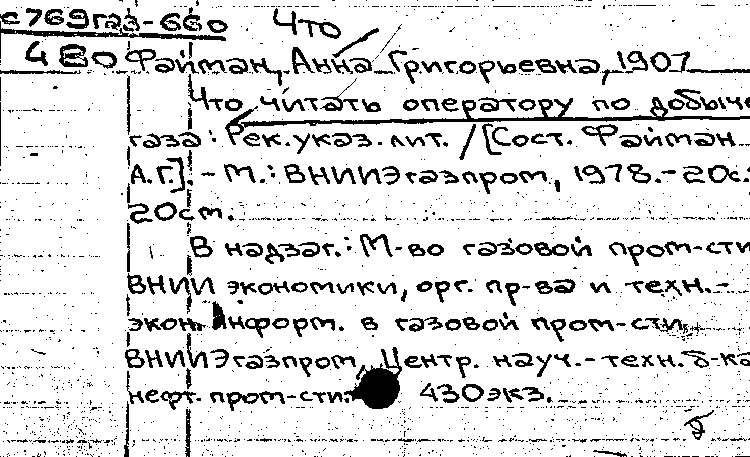 с769газ-660 Что
480 Файман, Анна Григорьевна, 1907
Что читать оператору по добыче
газа: Рек. указ. лит. / [Сост. Файман
А.Г]. - М.: ВНИИЭгазпром, 1978. - 20с.
20см.
В надзаг.: М-во газовой пром-сти
ВНИИ экономики, орг. пр-ва и техн.-
экон. информ. в газовой пром-сти
ВНИИЭгазпром, Центр. науч.-техн. б-ка
нефт. пром-сти. 430экз.